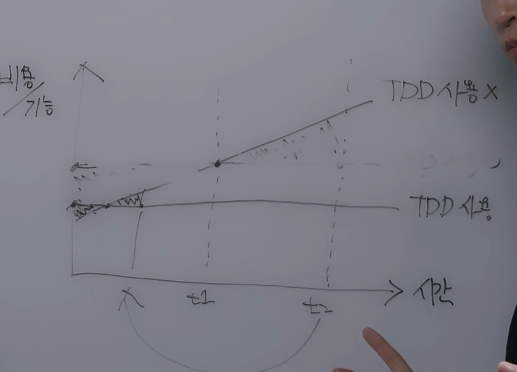 비용
/기능
TDD 사용 X
TDD 사용
t1
t2
시간